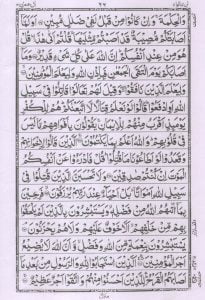 وَالْحِكْمَةَ وَاِنْ كَانُوْا مِنْ قَبْلُ لَفِيْ ضَلٰلٍ مُّبِيْنٍ اَوَلَمَّاۤ
اَصَابَتْكُمْ مُّصِيْبَةٌ قَدْ اَصَبْتُمْ مِّثْلَيْهَا قُلْتُمْ اَنّٰى هٰذَا قُلْ
هُوَ مِنْ عِنْدِ اَنْفُسِكُمْ اِنَّ اللّٰهَ عَلٰى كُلِّ شَيْءٍ قَدِيْرٌ وَمَاۤ
اَصَابَكُمْ يَوْمَ الْتَقَى الْجَمْعٰنِ فَبِاِذْنِ اللّٰهِ وَلِيَعْلَمَ الْمُؤْمِنِيْنَ
وَلِيَعْلَمَ الَّذِيْنَ نَافَقُوْا وَقِيْلَ لَهُمْ تَعَالَوْا قَاتِلُوْا فِيْ
سَبِيْلِ اللّٰهِ اَوِ ادْفَعُوْا قَالُوْا لَوْ نَعْلَمُ قِتَالًا لَّاتَّبَعْنٰكُمْ هُمْ لِلْكُفْرِ
يَوْمَئِذٍ اَقْرَبُ مِنْهُمْ لِلْاِيْمَانِ يَقُوْلُوْنَ بِاَفْوَاهِهِمْ مَّا لَيْسَ
فِيْ قُلُوْبِهِمْ وَاللّٰهُ اَعْلَمُ بِمَا يَكْتُمُوْنَ اَلَّذِيْنَ قَالُوْا لِاِخْوَانِهِمْ
وَقَعَدُوْا لَوْ اَطَاعُوْنَا مَا قُتِلُوْا قُلْ فَادْرَءُوْا عَنْ اَنْفُسِكُمُ
الْمَوْتَ اِنْ كُنْتُمْ صٰدِقِيْنَ وَلَا تَحْسَبَنَّ الَّذِيْنَ قُتِلُوْا فِيْ
سَبِيْلِ اللّٰهِ اَمْوَاتًا بَلْ اَحْيَآءٌ عِنْدَ رَبِّهِمْ يُرْزَقُوْنَ فَرِحِيْنَ
بِمَاۤ اٰتٰىهُمُ اللّٰهُ مِنْ فَضْلِهٖ وَيَسْتَبْشِرُوْنَ بِالَّذِيْنَ لَمْ يَلْحَقُوْا
بِهِمْ مِّنْ خَلْفِهِمْ اَلَّا خَوْفٌ عَلَيْهِمْ وَلَا هُمْ يَحْزَنُوْنَ
يَسْتَبْشِرُوْنَ بِنِعْمَةٍ مِّنَ اللّٰهِ وَفَضْلٍ وَّاَنَّ اللّٰهَ لَا يُضِيْعُ
اَجْرَ الْمُؤْمِنِيْنَ اَلَّذِيْنَ اسْتَجَابُوْا لِلّٰهِ وَالرَّسُوْلِ مِنْ بَعْدِ مَاۤ
اَصَابَهُمُ الْقَرْحُ لِلَّذِيْنَ اَحْسَنُوْا مِنْهُمْ وَاتَّقَوْا اَجْرٌ عَظِيْمٌ